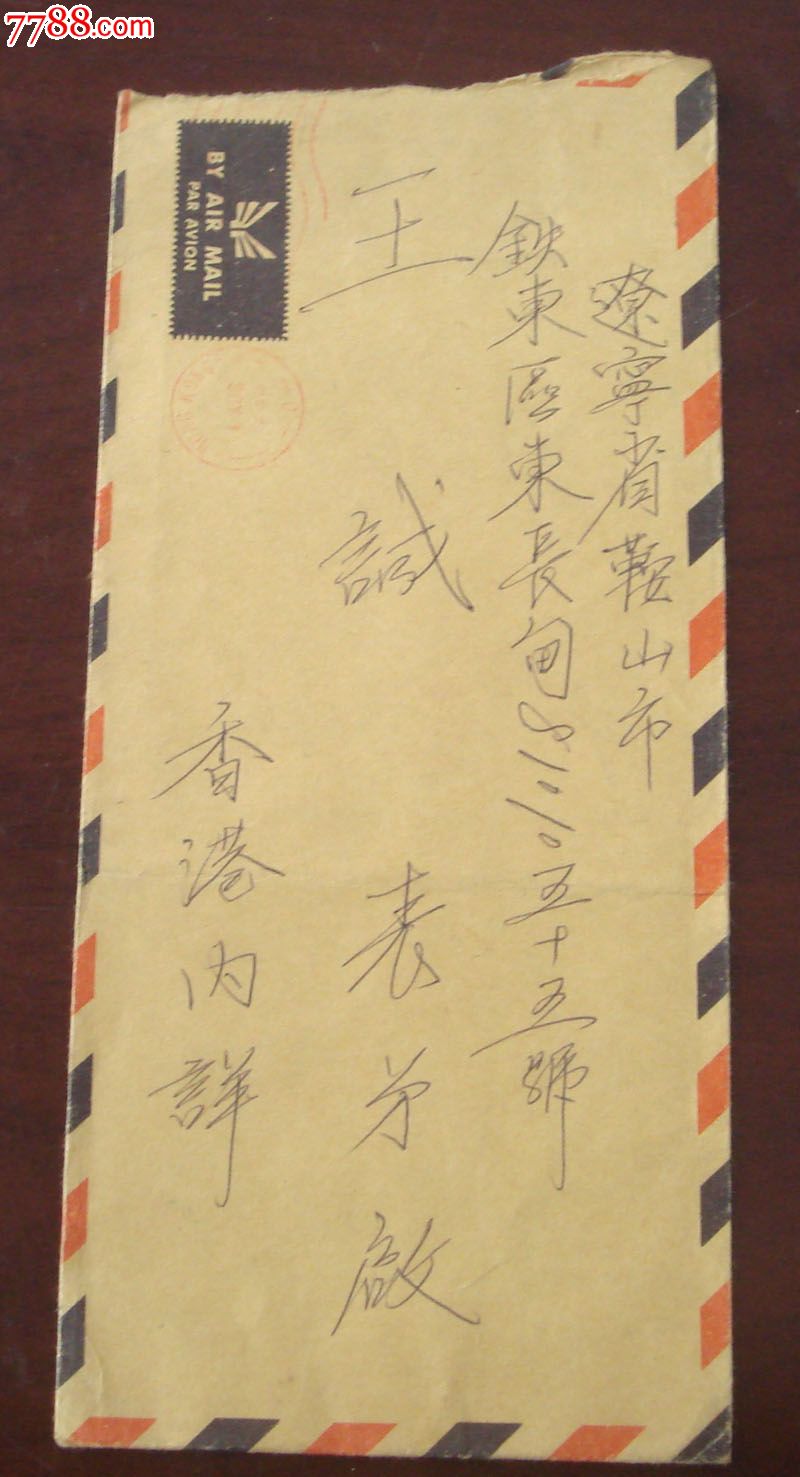 7788.com
BY AIR MAIL
PAR AVION
遼寧省鞍山市
鉄東區東長甸
五十五號
王誠表弟啟
香港内詳